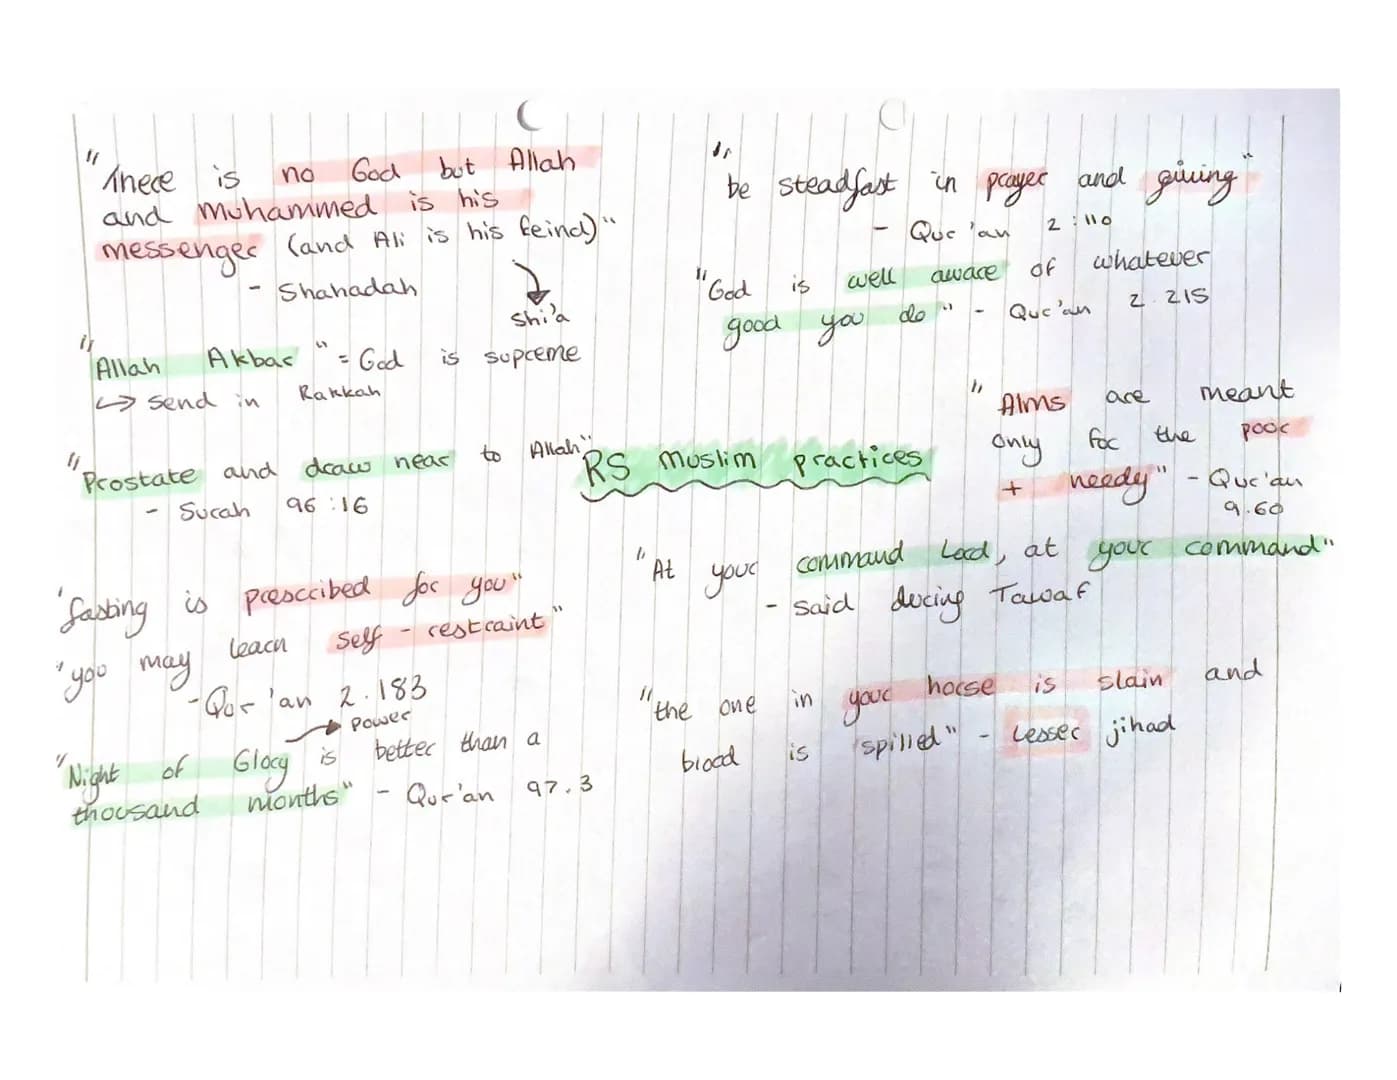 "There is no God but Allah
and Muhammed is his
messenger (and Ali is his feind)"
- Shahadah
Shi'a
"Allah Akbar" = God is supreme
↳ send in Rakkah
"Prostate and draw near to Allah"
- Surah 96:16
'fasting is prescribed for you"
"you may learn self-restraint"
- Qur'an 2.183
power
"Night of Glory is better than a
thousand months" - Qur'an 97.3
RS Muslim practices
"be steadfast in prayer and giving"
- Qur'an 2:110
"God is well aware of whatever
good you do" - Qur'an 2.215
"Alms are meant
only for the poor
+ needy" - Qur'an
9.60
"At your command Lord, at your command"
- said during Tawaf
"the one in your horse is slain and
blood is spilled" - Lesser jihad